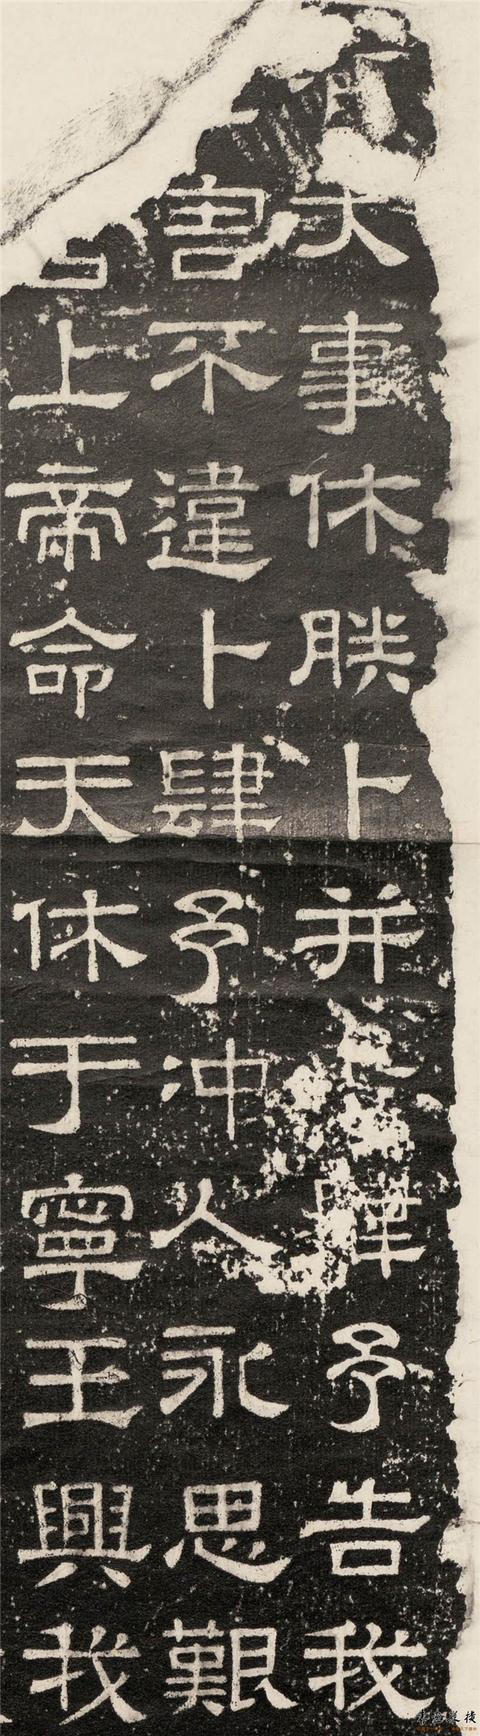 有大事休朕卜并肆予告我
害不違卜肆予冲人永思艱
上帝命天休于寧王興我